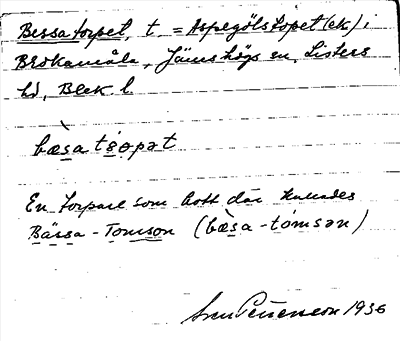 Bessatorpet, t = Aspegölstorpet (ek) i
Brokamåla, Jämshögs sn, Listers
hd, Blek. l.
bæ̀satɔ́rpət
En torpare som bott där kallades
Bässa-Tomson (bæ̀sa-tómsən)
Sven Petersson 1936